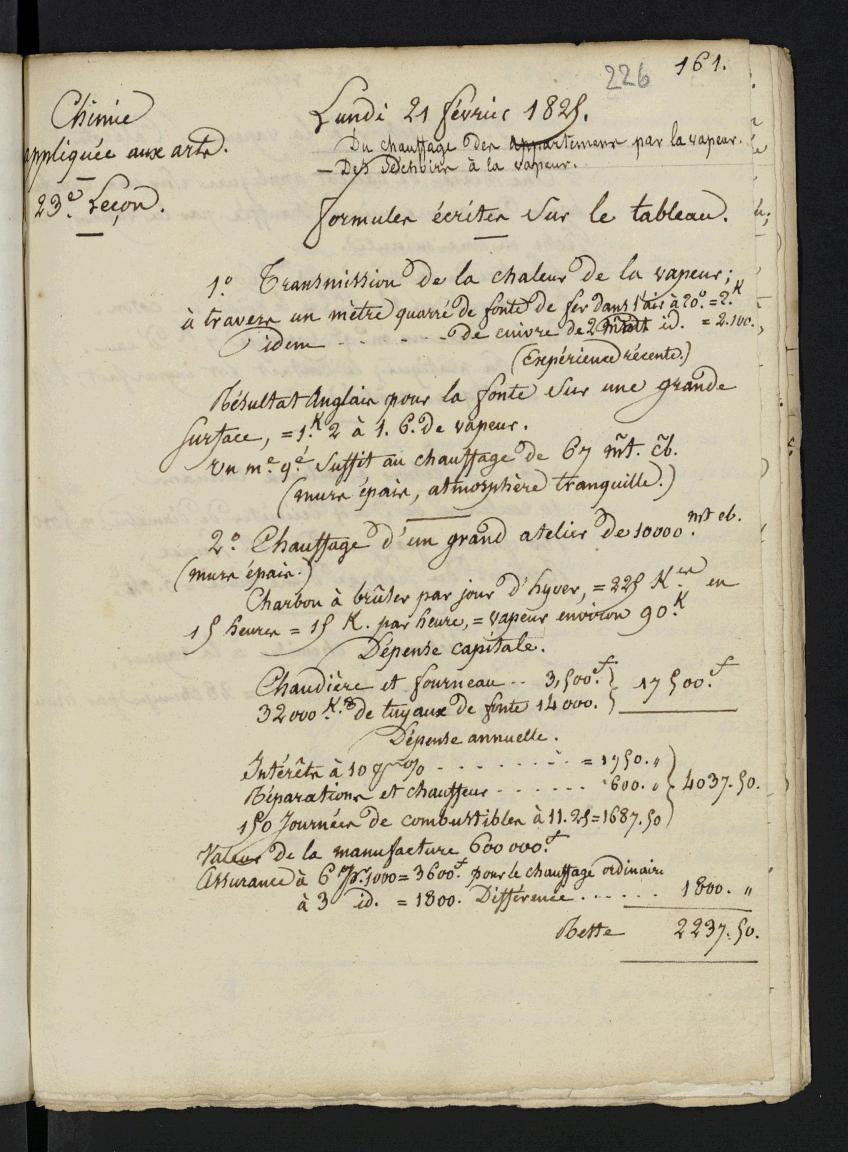 226 161.
Chimie
appliquée aux arts.
23.e Leçon.
Lundi 21 février 1825.
Du chauffage des appartemens par la vapeur.
— Des Séchoirs à la vapeur.
formules écrites sur le tableau.
1.o Transmission de la chaleur de la vapeur;
à travers un mètre quarré de fonte de fer dans l'air à 20.o = 2.K
idem - - - - - - - de cuivre de 2 id. = 2.100.
(Expérience récente.)
Résultat Anglais pour la fonte sur une grande
surface, = 1.K 2 à 1. 6. de vapeur.
Un m.e q.é suffit au chauffage de 67 mt. cb.
(murs épais, atmosphère tranquille.)
2.o Chauffage d'un grand atelier de 10000. mt cb.
(murs épais.)
Charbon à brûler par jour d'hyver, = 225 K.es en
15 heures = 15 K. par heure, = vapeur environ 90.K
Dépense capitale.
Chaudière et fourneau .. 3,500.f } 17500.f
32000 K.s de tuyaux de fonte 14000. }
Dépense annuelle.
Intérêts à 10 p% - - - - - - - = 1750. "
Réparations et chauffeur - - - - - - 600. " } 4037.50.
150 Journées de combustibles à 11.25 = 1687.50
Valeur de la manufacture 600000.f
Assurance à 6 p. 1000 = 3600.f pour le chauffage ordinaire
à 3 id. = 1800. Différence . . . . . . 1800. "
Reste 2237.50.